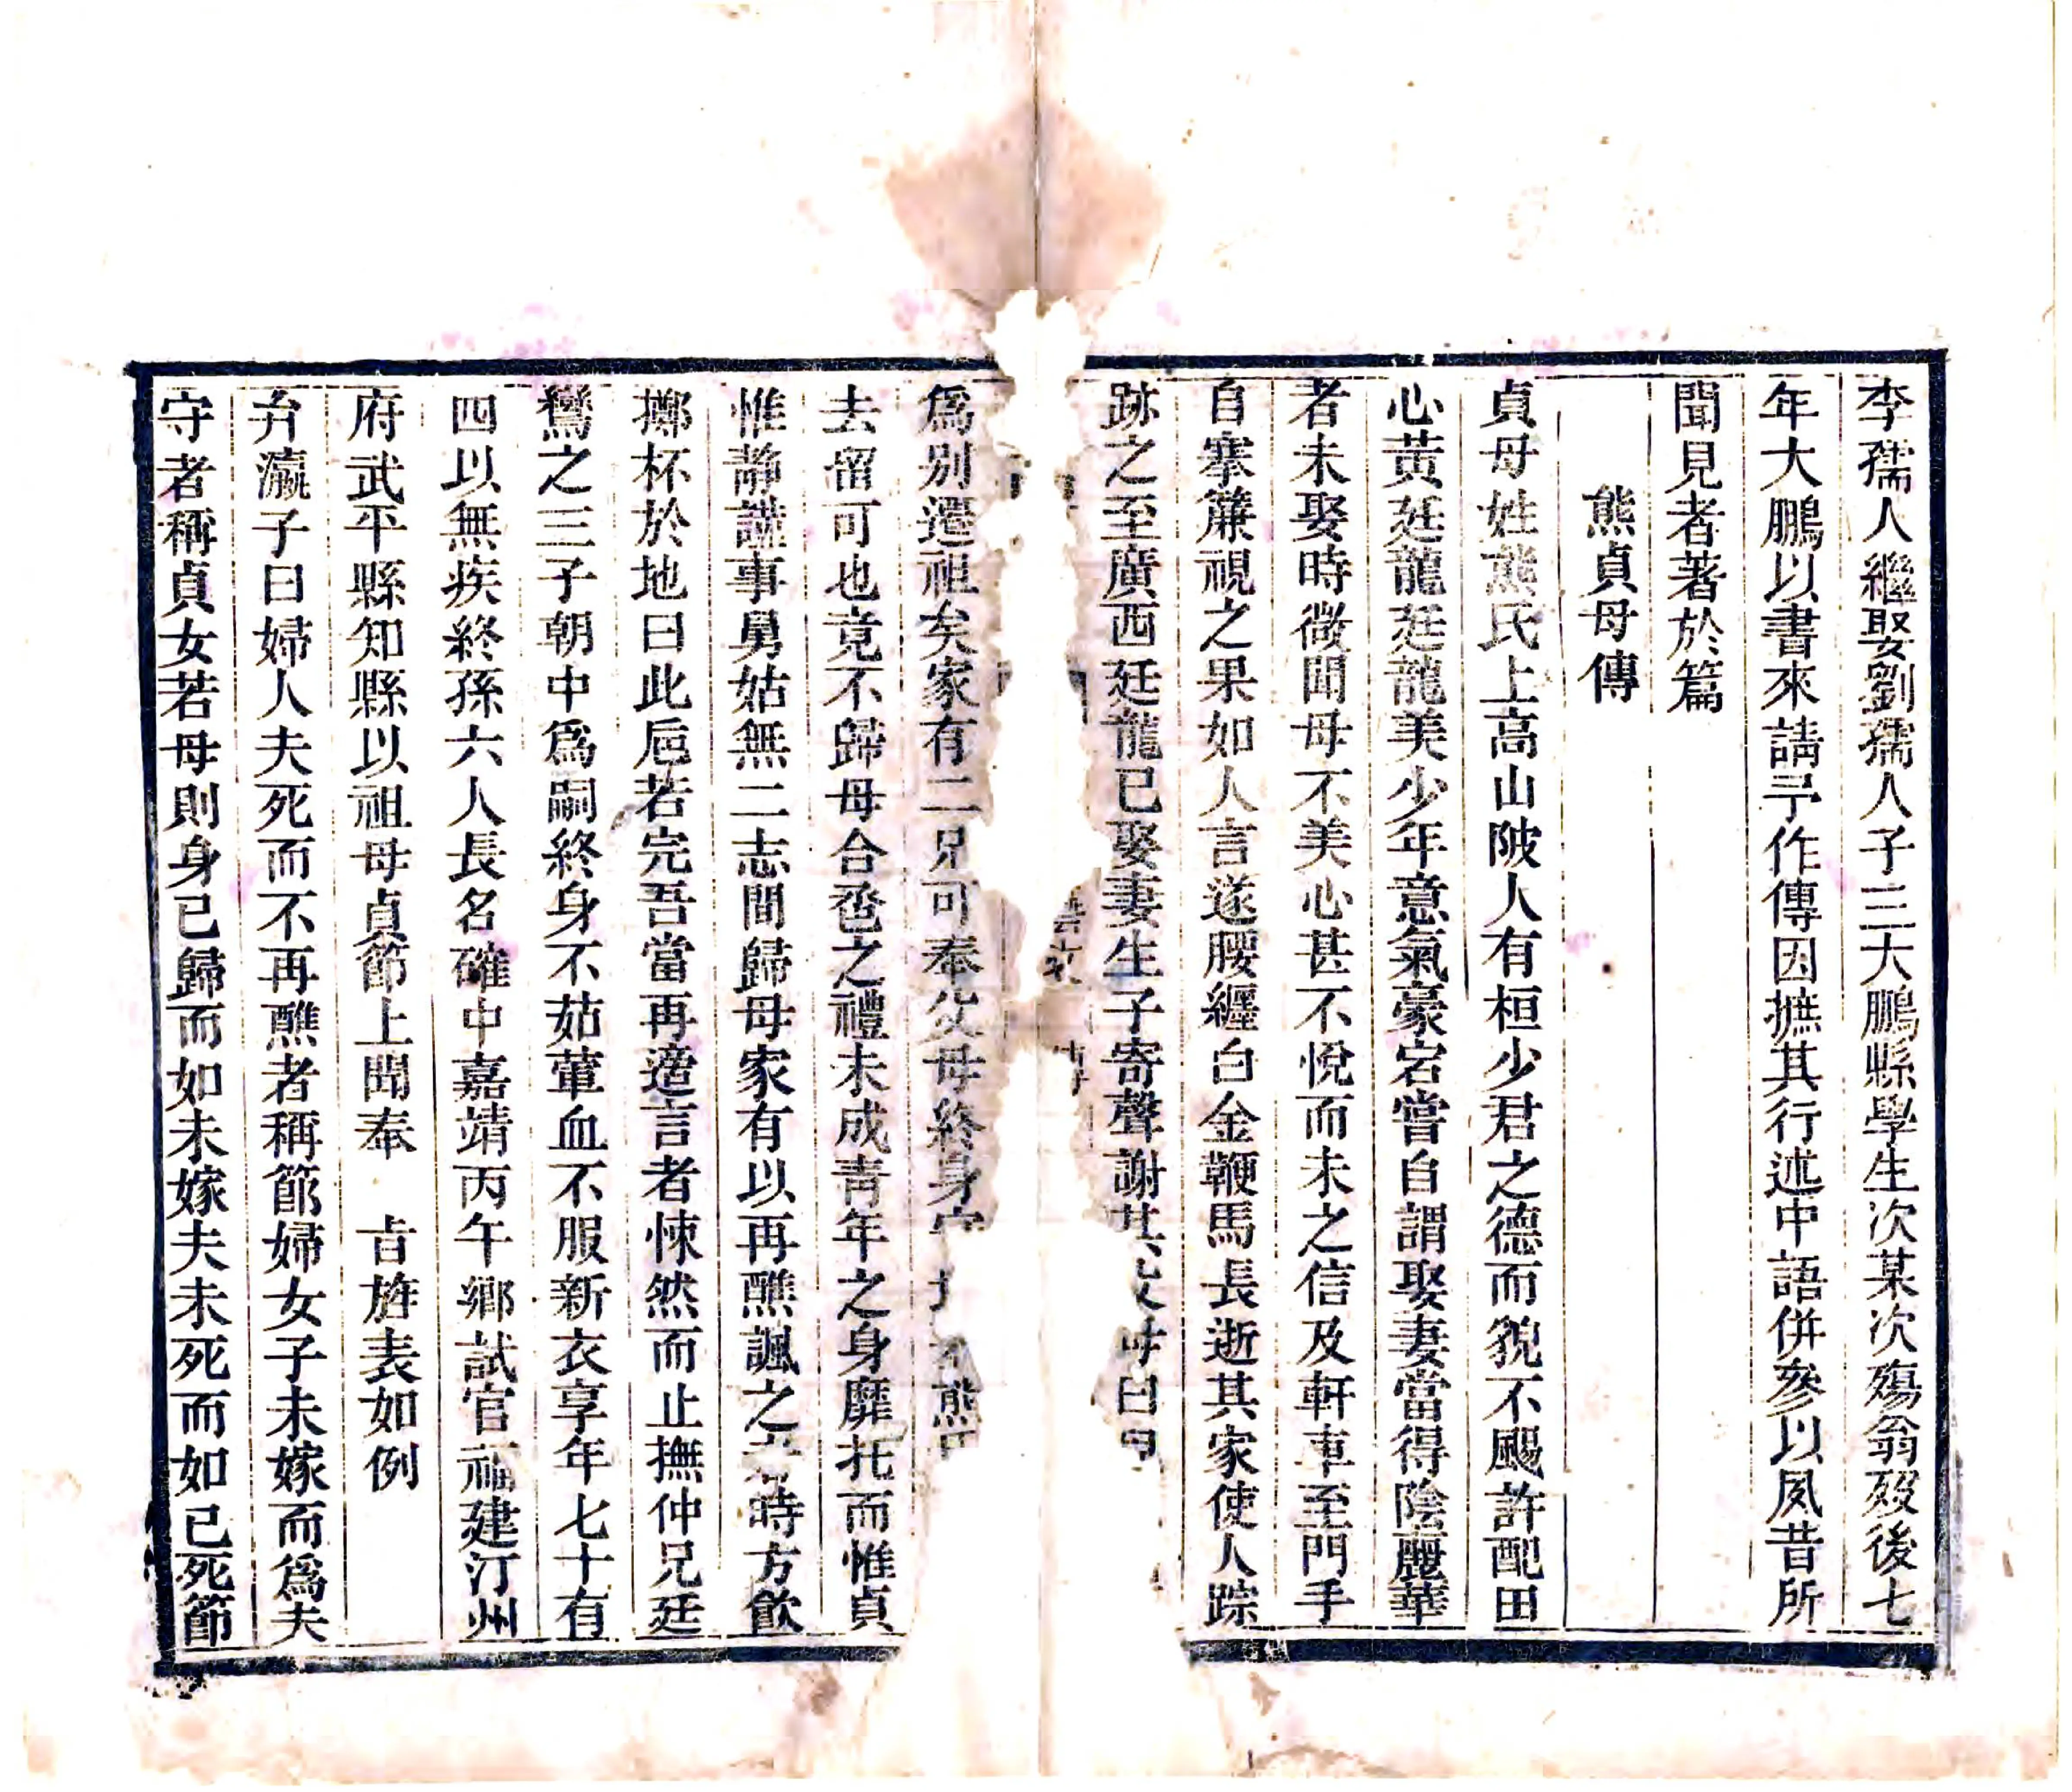 李孺人繼娶劉孺人子三大鵬縣學生次某次殤翁歿後七
年大鵬以書來請予作傳因摭其行述中語併參以夙昔所
聞見者著於篇
熊貞母傳
貞母姓熊氏上高山陂人有桓少君之德而貌不颺許配田
心黃廷龍廷龍美少年意氣豪宕嘗自謂娶妻當得陰麗華
者未娶時微聞母不美心甚不悅而未之信及軒車至門手
自搴簾視之果如人言遂腰纏白金鞭馬長逝其家使人踪
跡之至廣西廷龍已娶妻生子寄聲謝其父母曰
藝文 傳
爲別遷祖矣家有二兄可奉父母終身 熊
去留可也竟不歸母合巹之禮未成靑年之身靡托而惟貞
惟靜謹事舅姑無二志間歸母家有以再醮諷之 時方飮
擲杯於地曰此卮若完吾當再適言者悚然而止撫仲兄廷
鸞之三子朝中爲嗣終身不茹葷血不服新衣享年七十有
四以無疾終孫六人長名確中嘉靖丙午鄉試官福建汀州
府武平縣知縣以祖母貞節上聞奉 旨旌表如例
弁瀛子曰婦人夫死而不再醮者稱節婦女子未嫁而爲夫
守者稱貞女若母則身已歸而如未嫁夫未死而如已死節